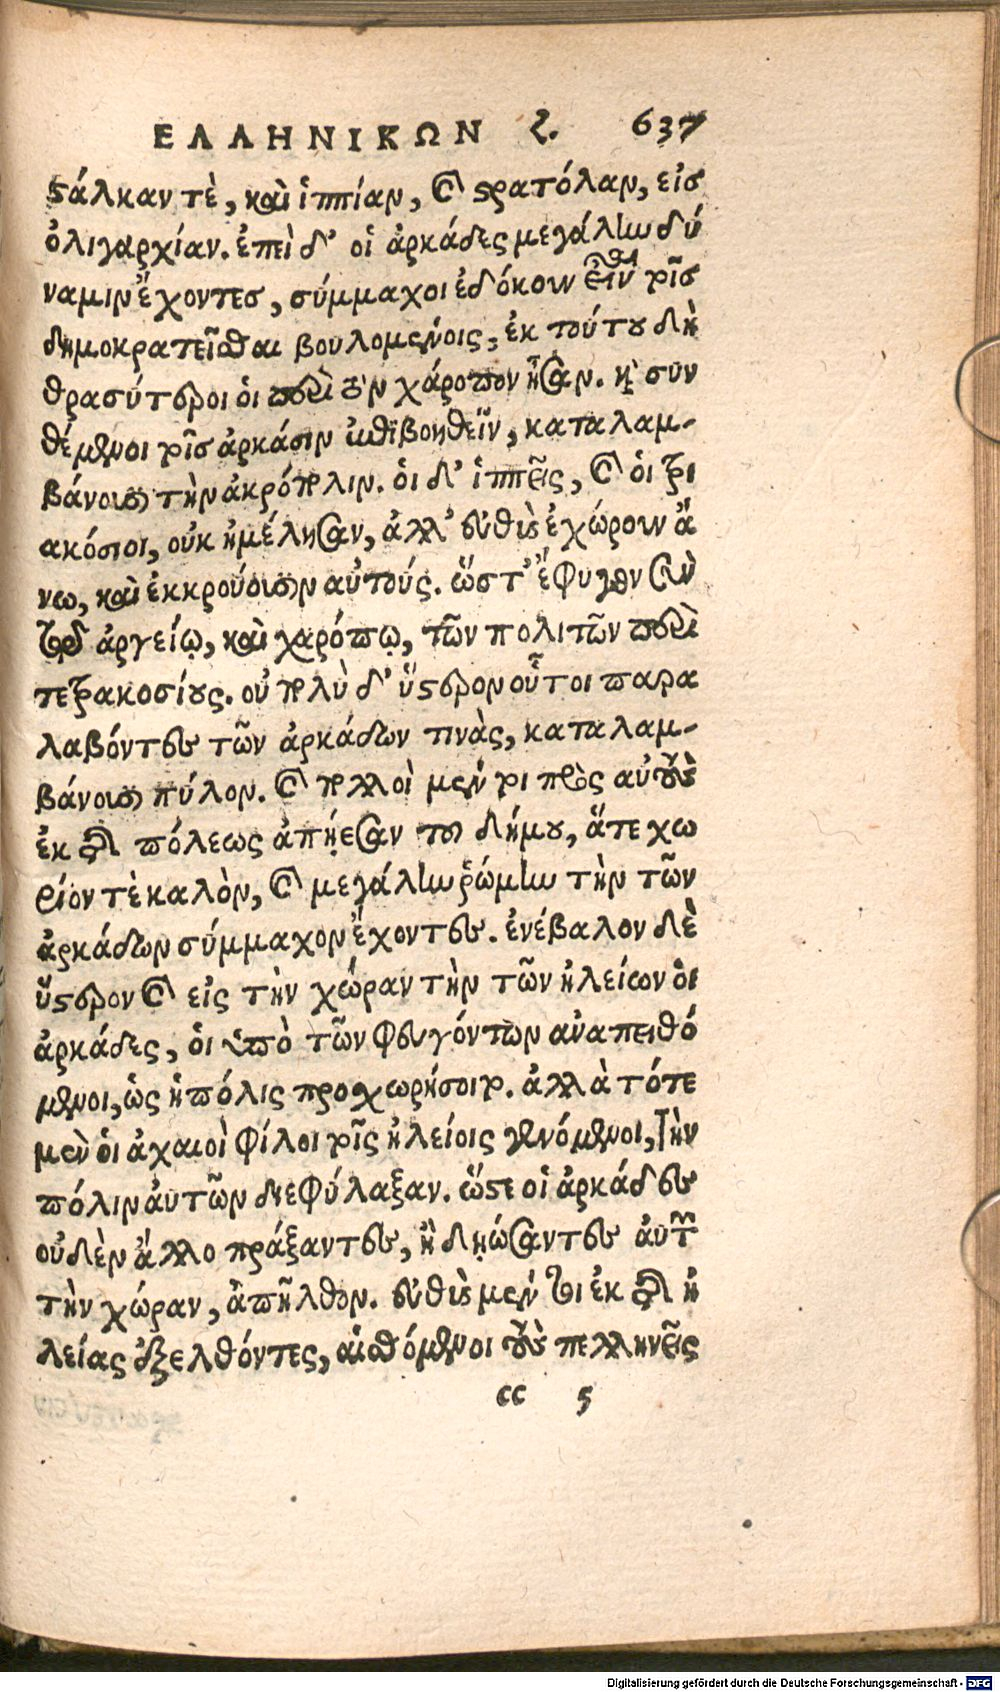 ΕΛΛΗΝΙΚΩΝ ζ. 637
ϛάλκαν τὲ, καὶ ἱππίαν, καὶ ϛρατόλαν, εἰς
ὀλιγαρχίαν. ἐπεὶ δ' οἱ ἀρκάδες μεγάλην δύ
ναμιν ἔχοντες, σύμμαχοι ἐδόκουν εἶναι τοῖς
δημοκρατεῖσθαι βουλομένοις, ἐκ τούτου δὴ
θρασύτεροι οἱ περὶ τὸν χάροπον ἦσαν. καὶ συν
θέμενοι τοῖς ἀρκάσιν ἐπιβοηθεῖν, καταλαμ-
βάνουσι τὴν ἀκρόπολιν. οἱ δ' ἱππεῖς, καὶ οἱ τρι
ακόσιοι, οὐκ ἠμέλησαν, ἀλλ' εὐθὺς ἐχώρουν ἄ
νω, καὶ ἐκκρούουσιν αὐτούς. ὥστ' ἔφυγον σὺν
τῷ ἀργείῳ, καὶ χαρόπῳ, τῶν πολιτῶν περὶ
τετρακοσίους. οὐ πολὺ δ' ὕϛερον οὗτοι παρα
λαβόντες τῶν ἀρκάδων τινὰς, καταλαμ-
βάνουσι πύλον. καὶ πολλοὶ μέντοι πρὸς αὐτοὺς
ἐκ τῆς πόλεως ἀπῄεσαν τοῦ δήμου, ἅτε χω
ρίον τὲ καλὸν, καὶ μεγάλην ῥώμην τὴν τῶν
ἀρκάδων σύμμαχον ἔχοντες. ἐνέβαλον δὲ
ὕϛερον καὶ εἰς τὴν χώραν τὴν τῶν ἠλείων οἱ
ἀρκάδες, οἱ ὑπὸ τῶν φευγόντων ἀναπειθό
μενοι, ὡς ἡ πόλις προχωρήσοιτο. ἀλλὰ τότε
μὲν οἱ ἀχαιοὶ φίλοι τοῖς ἠλείοις γενόμενοι, τὴν
πόλιν αὐτῶν διεφύλαξαν. ὥϛε οἱ ἀρκάδες
οὐδὲν ἄλλο πράξαντες, ἢ δῃώσαντες αὐτῶν
τὴν χώραν, ἀπῆλθον. εὐθὺς μέντοι ἐκ τῆς ἠ
λείας ἐξελθόντες, αἰσθόμενοι τοὺς πελληνεῖς
cc 5
Digitalisierung gefördert durch die Deutsche Forschungsgemeinschaft - DFG